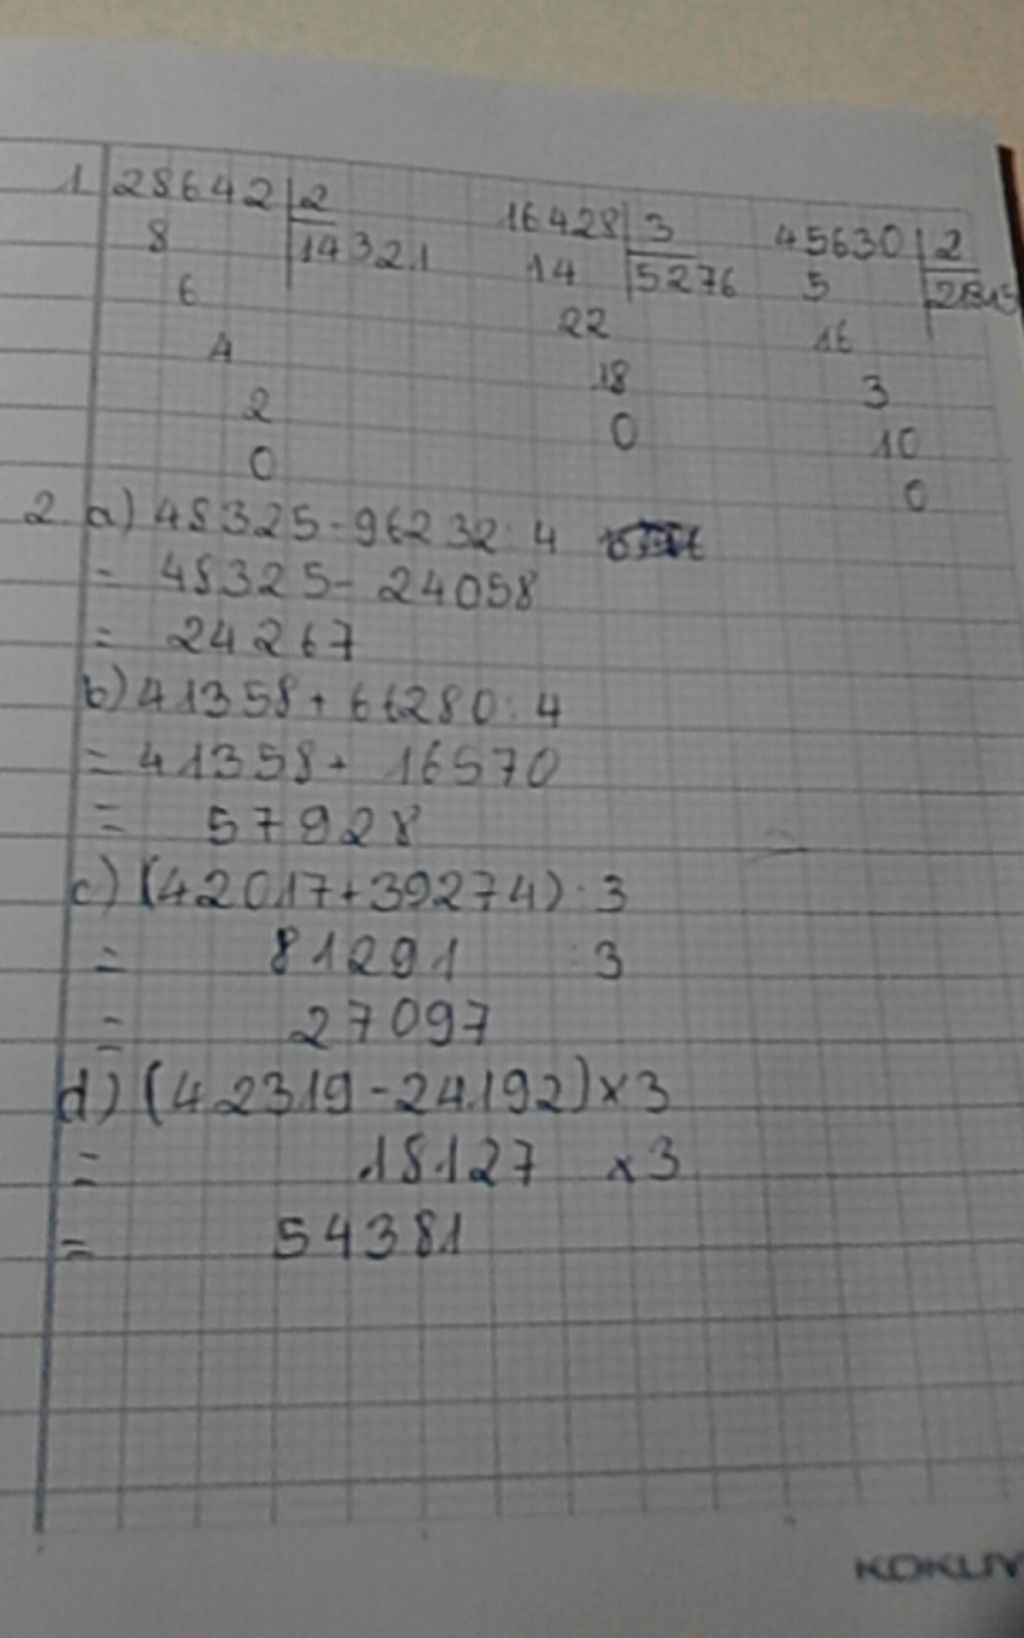 1 28642 | 2 16428 | 3 45630 | 2
8 14321 14 5276 5
6 22 16
4 18 3
2 0 10
0 0
2 a) 48325 - 96232 : 4
= 48325 - 24058
= 24267
b) 41358 + 66280 : 4
= 41358 + 16570
= 57928
c) (42017 + 39274) : 3
= 81291 : 3
= 27097
d) (42319 - 24192) x 3
= 18127 x 3
= 54381